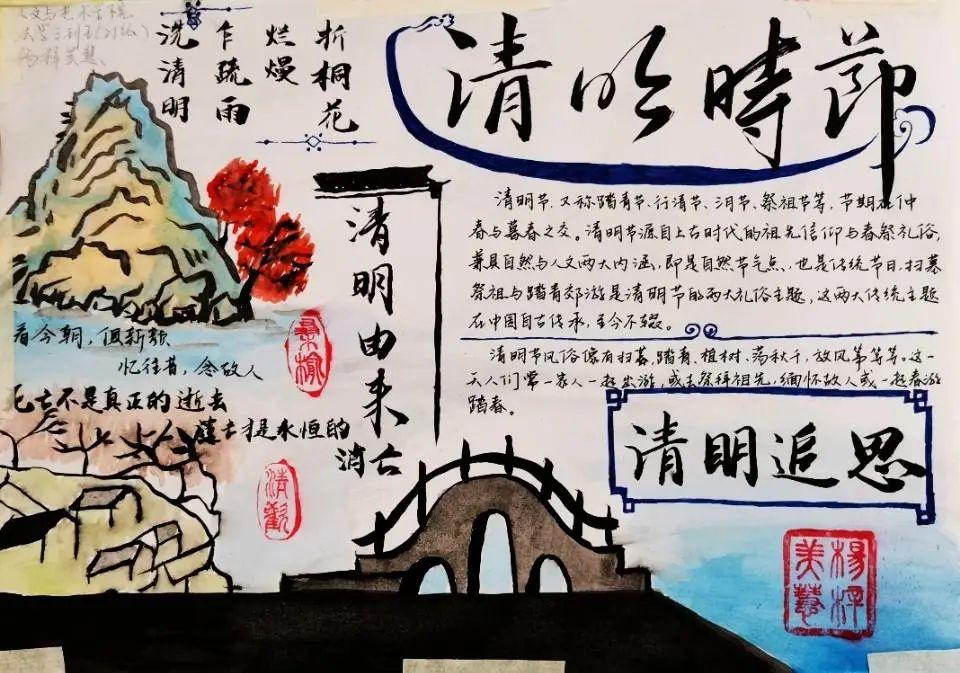 清明時節
折桐花
烂熳
乍疏雨
洗清明
清明由来
清明节,又称踏青节、行清节、三月节、祭祖节等,节期在仲
春与暮春之交。清明节源自上古时代的祖先信仰与春祭礼俗,
兼具自然与人文两大内涵,即是自然节气点,也是传统节日,扫墓
祭祖与踏青郊游是清明节的两大礼俗主题,这两大传统主题
在中国自古传承,至今不辍。
清明节风俗像有扫墓,踏青、植树、荡秋千,放风筝等等。这一
天人们常一家人一起出游,或去祭拜祖先,缅怀故人或一起春游
踏春。
看今朝,但新颜
忆往昔,念故人
死亡不是真正的逝去
遗忘才是永恒的
消亡
清明追思
桑榆
清欢
楊梓
美慧